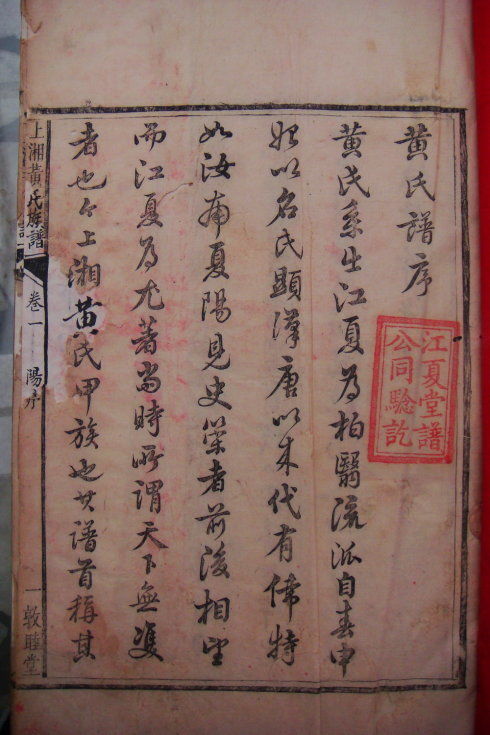 黄氏譜序
黄氏系出江夏為柏翳流派自春申
始以名氏顯漢唐以来代有偉特
如汝南夏陽見史策者前後相望
而江夏為尤著當時所謂天下無雙
者也今上湘黄氏甲族也其譜首稱其
江夏堂譜
公同驗訖
上湘黄氏族譜
卷一
陽序
一
敦睦堂